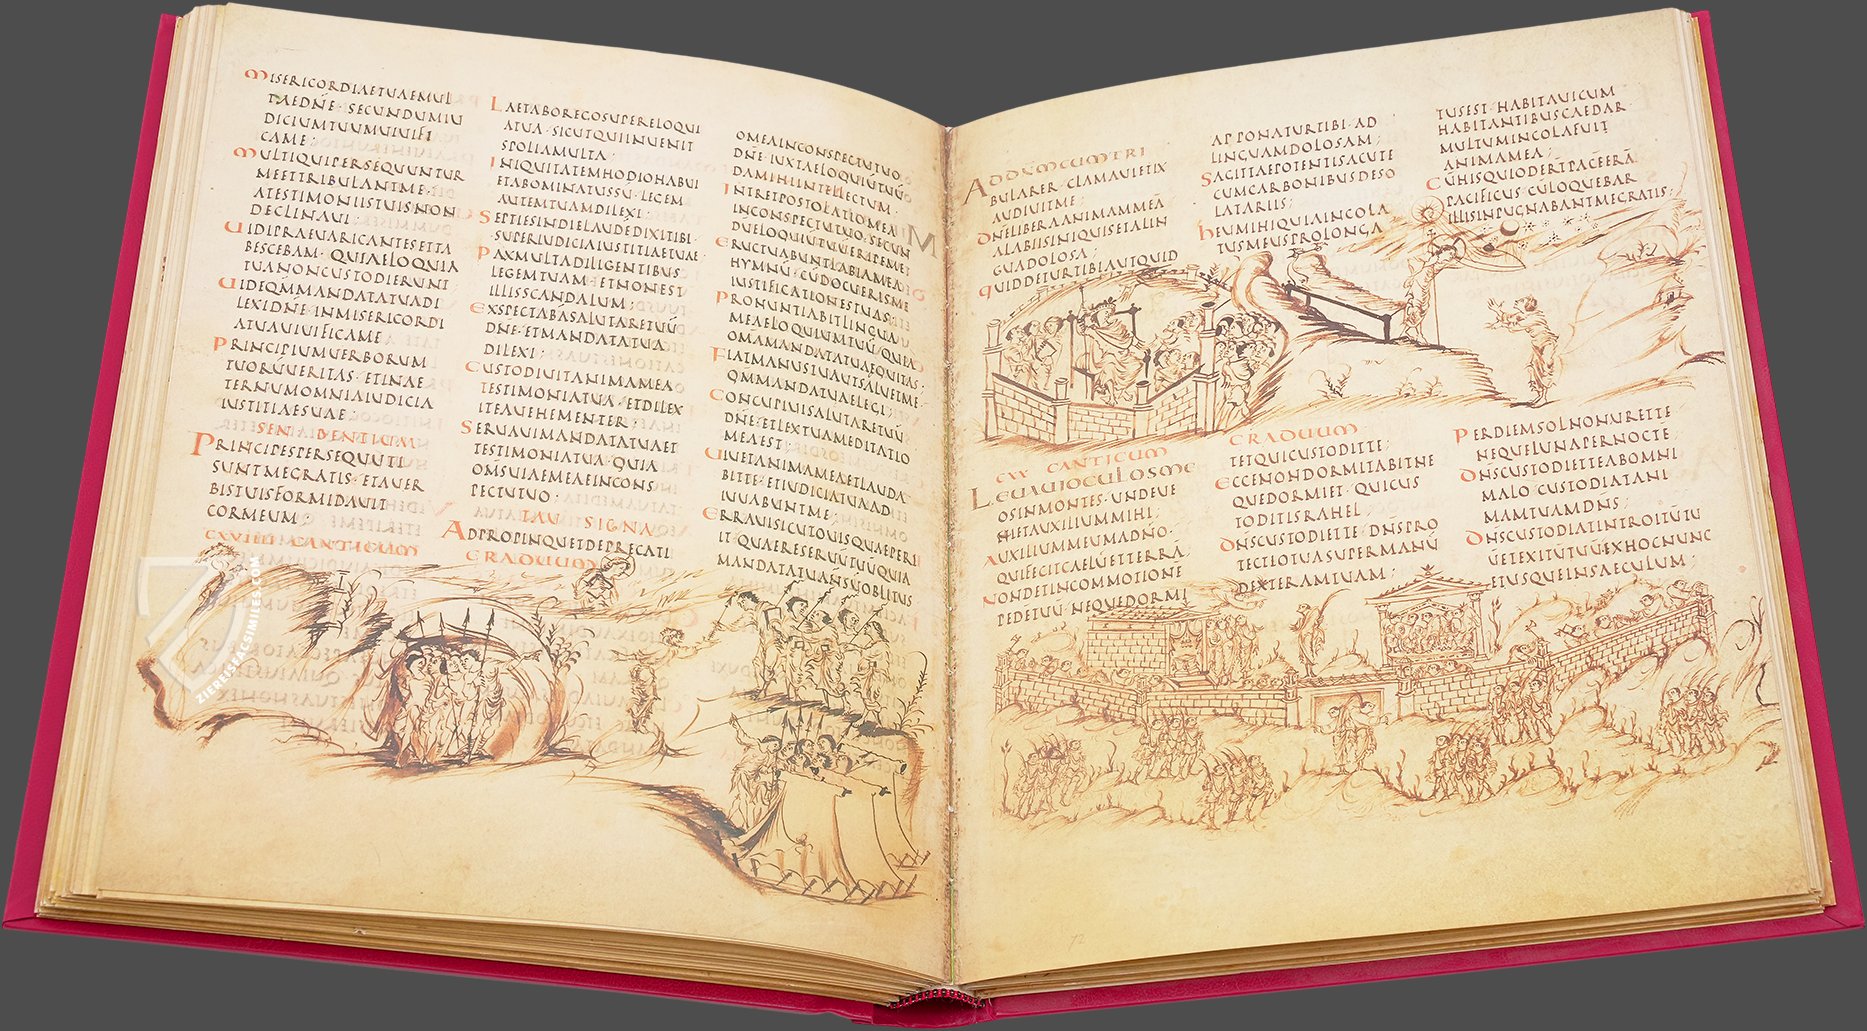 MISERICORDIAETUAEMUL
TAEDÑE·SECUNDUMIU
DICIUMTUUMUIUIFI
CAME·
MULTIQUIPERSEQUUNTUR
MEETTRIBULANTME·
ATESTIMONIISTUISNON
DECLINAUI;
UIDIPRAEUARICANTESETTA
BESCEBAM·QUIAELOQUIA
TUANONCUSTODIERUNT;
UIDEQMMANDATATUADI
LEXIDÑE·INMISERICORDI
ATUAUIUIFICAME
PRINCIPIUMUERBORUM
TUORŪUERITAS·ETINAE
TERNUMOMNIAIUDICIA
IUSTITIAESUAE·
SEN DENTIUM
PRINCIPESPERSEQUUTI
SUNTMEGRATIS·ETAUER
BISTUISFORMIDAUIT
CORMEUM;
CXVIIII CANTICUM
LAETABOREGOSUPERELOQUI
ATUA·SICUTQUIINUENIT
SPOLIAMULTA;
INIQUITATEMHODIOHABUI
ETABOMINATUSSU·LEGEM
AUTEMTUAMDILEXI;
SEPTIESINDIELAUDEDIXITIBI·
SUPERIUDICIAIUSTITIAETUAE·
PAXMULTADILIGENTIBUS
LEGEMTUAM·ETNONEST
ILLISSCANDALUM;
EXSPECTABASALUTARETUŪ
DNE·ETMANDATATUA
DILEXI;
CUSTODIUITANIMAMEA
TESTIMONIATUA·ETDILEX
ITEAUEHEMENTER·
SERUAUIMANDATATUAET
TESTIMONIATUA·QUIA
OMS̄UIAEMEAEINCONS
PECTUTUO·
TAU SIGNA
ADPROPINQUETDEPRECATI
GRADUUM
OMEAINCONSPECTUTUO
DÑE·IUXTAELOQUIUTUŪ·
DAMIHIINTELLECTUM·
INTRETPOSTOLATIOMEA
INCONSPECTUTUO·SECUN
DŪELOQUIŪTUŪERIPEME;
ERUCTUABUNTLABIAMEA
HYMNŪ·CŪDOCUERISME
IUSTIFICATIONESTUAS;
PRONUNTIABITLINGUA
MEAELOQUIUMTUŪ·QUIA
OMAMANDATATUAEQUITAS·
FIATMANUSTUAUTSALUETME·
QMMANDATUAELEGI;
CONCUPIUISALUTARETUŪ
DÑE·ETLEXTUAMEDITATIO
MEAEST;
UIUETANIMAMEAETLAUDA
BITTE·ETIUDICIATUAAD
IUUABUNTME;
ERRAUISICUTOUISQUAEPERI
IT·QUAERESERUŪTUŪQUIA
MANDATATUANS̄UOBLITUS
ADDUMCUMTRI
BULARER·CLAMAUIETIX
AUDIUITME;
DÑELIBERAANIMAMMEĀ
ALABIISINIQUISETALIN
GUADOLOSA;
QUIDDETURTIBIAUTQUID
APPONATURTIBI·AD
LINGUAMDOLOSAM;
SAGITTAEPOTENTISACUTE
CUMCARBONIBUSDESO
LATARIIS;
HEUMIHIQUIAINCOLA
TUSMEUSPROLONGA
TUSEST·HABITAUICUM
HABITANTIBUSCAEDAR·
MULTUMINCOLAFUIT
ANIMAMEA;
CŪHISQUIODERT̄PACĒERĀ
PACIFICUS·CŪLOQUEBAR
ILLISINPUGNABANTMEGRATIS;
CXX CANTICUM
LEUAUIOCULOSME
OSINMONTES·UNDEUE
NIETAUXILIUMMIHI;
AUXILIUMMEUMADÑO·
QUIFECITCAELŪETTERRĀ·
NONDETINCOMMOTIONE
PEDETUŪ·NEQUEDORMI
GRADUUM
TETQUICUSTODITTE;
ECCENONDORMITABITNE
QUEDORMIET·QUICUS
TODITISRAHEL·
DNSCUSTODIETTE·DNSPRO
TECTIOTUASUPERMANŪ
DEXTERAMTUAM;
PERDIEMSOLNONURETTE
NEQUELUNAPERNOCTĒ
DNSCUSTODIETTEABOMNI
MALO·CUSTODIATANI
MAMTUAMDNS;
DNSCUSTODIATINTROITŪTU
ŪETEXITŪTUŪEXHOCNUNC
ETUSQUEINSAECULUM;
72
ZIERESFACSIMILES.COM